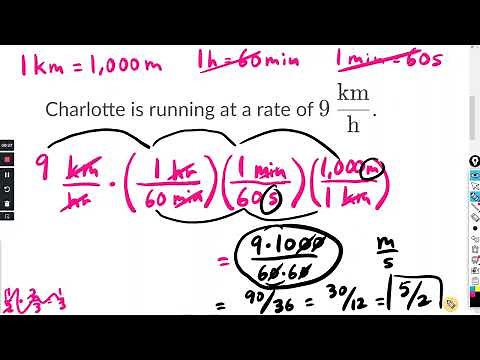 1 km = 1,000 m 1 h = 60 min 1 min = 60 s
Charlotte is running at a rate of 9 km/h.
9 km/hr · (1 hr/60 min)(1 min/60 s)(1,000 m/1 km)
= 9·1000/60·60 m/s
= 90/36 = 30/12 = 5/2